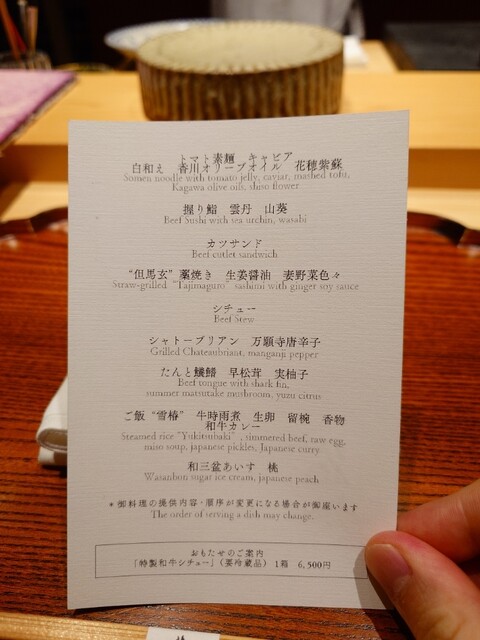 トマト素麺　キャビア
白和え　香川オリーブオイル　花穂紫蘇
Somen noodle with tomato jelly, caviar, mashed tofu,
Kagawa olive oils, shiso flower
握り鮨　雲丹　山葵
Beef Sushi with sea urchin, wasabi
カツサンド
Beef cutlet sandwich
“但馬玄”藁焼き　生姜醤油　妻野菜色々
Straw-grilled “Tajimaguro” sashimi with ginger soy sauce
シチュー
Beef Stew
シャトーブリアン　万願寺唐辛子
Grilled Chateaubriant, manganji pepper
たんと鱶鰭　早松茸　実柚子
Beef tongue with shark fin,
summer matsutake mushroom, yuzu citrus
ご飯“雪椿”　牛時雨煮　生卵　留椀　香物
和牛カレー
Steamed rice “Yukitsubaki”, simmered beef, raw egg,
miso soup, japanese pickles, Japanese curry
和三盆あいす　桃
Wasanbon sugar ice cream, japanese peach
＊御料理の提供内容・順序が変更になる場合が御座います
The order of serving a dish may change.
おもたせのご案内
「特製和牛シチュー」（要冷蔵品）1箱　6,500円